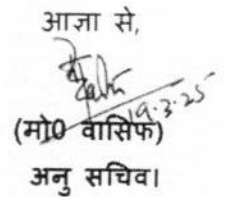 आज्ञा से,
19.3.25
(मो0 वासिफ)
अनु सचिव।